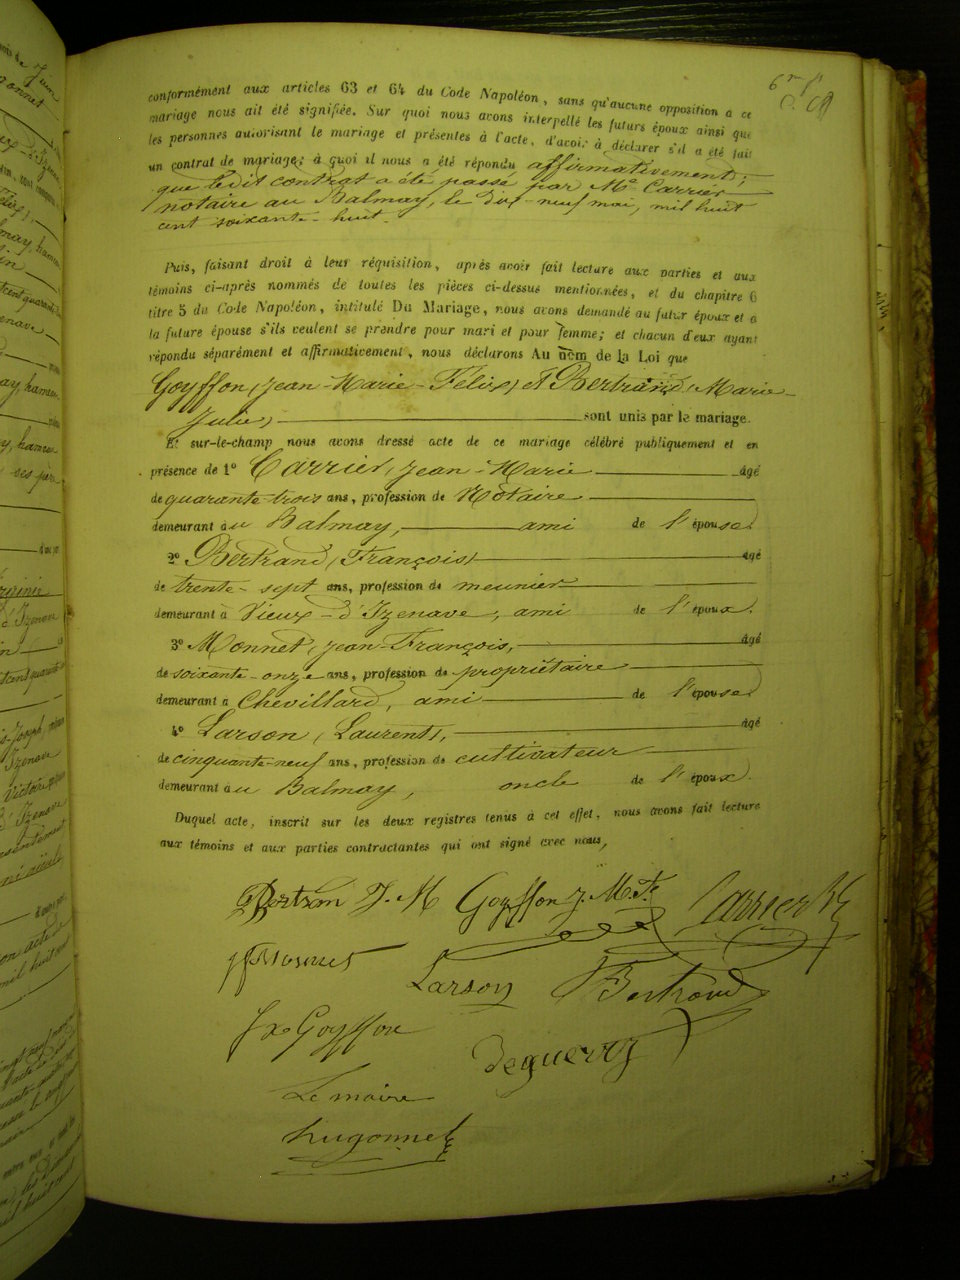 conformément aux articles 63 et 64 du Code Napoléon, sans qu'aucune opposition a ce
mariage nous ait été signifiée. Sur quoi nous avons interpellé les futurs époux ainsi que
les personnes autorisant le mariage et présentes à l'acte, d'avoir à déclarer s'il a été fait
un contrat de mariage; à quoi il nous a été répondu affirmativement;
que ledit contrat a été passé par Me Carrier
notaire au Balmay, le dix-neuf mai, mil huit
cent soixante-huit.
Puis, faisant droit à leur réquisition, après avoir fait lecture aux parties et aux
témoins ci-après nommés de toutes les pièces ci-dessus mentionnées, et du chapitre 6
titre 5 du Code Napoléon, intitulé Du Mariage, nous avons demandé au futur époux et a
la future épouse s'ils veulent se prendre pour mari et pour femme; et chacun d'eux ayant
répondu séparément et affirmativement, nous déclarons Au nom de la Loi que
Goyffon, (Jean-Marie-Félix) et Bertrand, (Marie-
Julie) sont unis par le mariage.
Et sur-le-champ nous avons dressé acte de ce mariage célébré publiquement et en
présence de 1° Carrier, Jean-Marie âgé
de quarante-trois ans, profession de Notaire
demeurant au Balmay, ami de l'épouse.
2° Bertrand, (François) âgé
de trente-sept ans, profession de meunier
demeurant à Vieux-d'Izenave, ami de l'époux.
3° Monnet, Jean-François, âgé
de soixante-onze ans, profession de propriétaire
demeurant a Chevillard, ami de l'épouse
4° Larson, (Laurent), âgé
de cinquante-neuf ans, profession de cultivateur
demeurant au Balmay, oncle de l'époux.
Duquel acte, inscrit sur les deux registres tenus à cet effet, nous avons fait lecture
aux témoins et aux parties contractantes qui ont signé avec nous,
Bertran J. M Goyffon J. M. Fe Carrier
Monnet Larson Bertrand
Goyffon Deguerry
Le maire
hugonnet